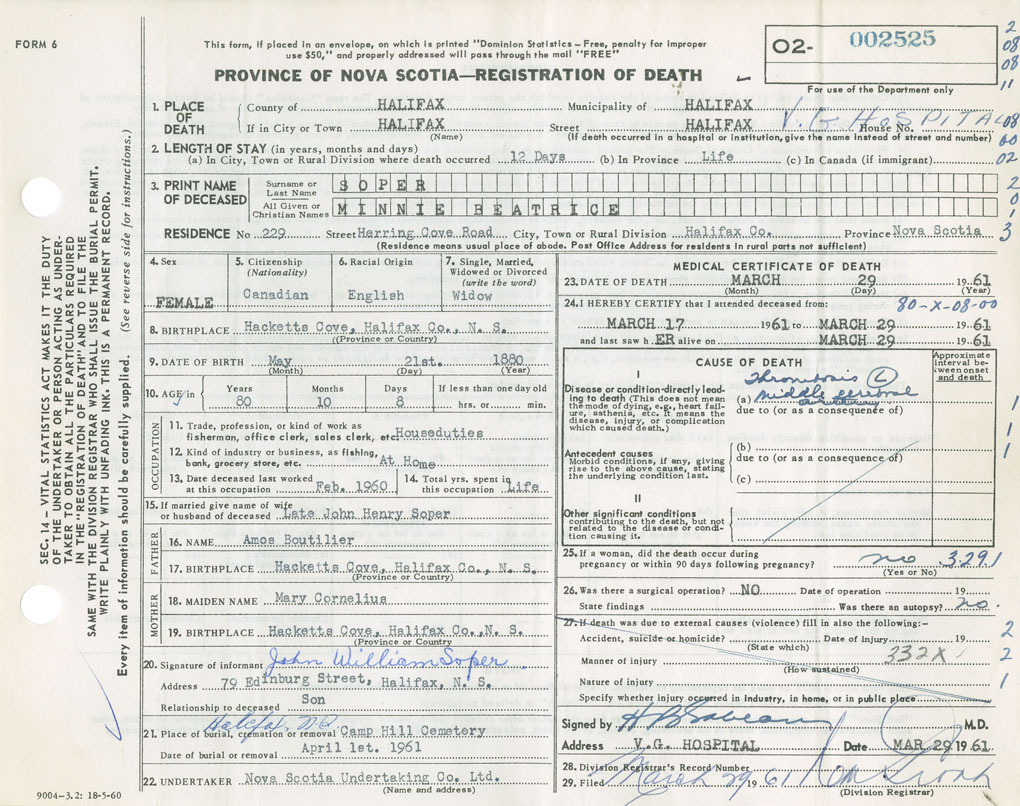 FORM 6
This form, if placed in an envelope, on which is printed "Dominion Statistics – Free, penalty for improper
use $50," and properly addressed will pass through the mail "FREE"
PROVINCE OF NOVA SCOTIA—REGISTRATION OF DEATH
02- 002525
For use of the Department only
2
08
08
11
08
00
02
2
0
1
3
1. PLACE OF DEATH
County of HALIFAX Municipality of HALIFAX
If in City or Town HALIFAX Street HALIFAX House No. V. G HOSPITAL
(Name) (If death occurred in a hospital or institution, give the name instead of street and number)
2. LENGTH OF STAY (in years, months and days)
(a) In City, Town or Rural Division where death occurred 12 Days (b) In Province Life (c) In Canada (if immigrant)
3. PRINT NAME OF DECEASED
Surname or Last Name SOPER
All Given or Christian Names MINNIE BEATRICE
RESIDENCE No 229 Street Harring Cove Road City, Town or Rural Division Halifax Co. Province Nova Scotia
(Residence means usual place of abode. Post Office Address for residents in rural parts not sufficient)
4. Sex
FEMALE
5. Citizenship (Nationality)
Canadian
6. Racial Origin
English
7. Single, Married, Widowed or Divorced (write the word)
Widow
8. BIRTHPLACE Hacketts Cove, Halifax Co., N. S.
(Province or Country)
9. DATE OF BIRTH May 21st. 1880
(Month) (Day) (Year)
10. AGE in Years Months Days If less than one day old
80 10 8 hrs. or min.
OCCUPATION
11. Trade, profession, or kind of work as
fisherman, office clerk, sales clerk, etc. Houseduties
12. Kind of industry or business, as fishing,
bank, grocery store, etc. At Home
13. Date deceased last worked at this occupation Feb. 1960
14. Total yrs. spent in this occupation Life
15. If married give name of wife
or husband of deceased Late John Henry Soper
FATHER
16. NAME Amos Boutilier
17. BIRTHPLACE Hacketts Cove, Halifax Co., N. S.
(Province or Country)
MOTHER
18. MAIDEN NAME Mary Cornelius
19. BIRTHPLACE Hacketts Cove, Halifax Co., N. S.
(Province or Country)
20. Signature of informant John William Soper
Address 79 Edinburg Street, Halifax, N. S.
Relationship to deceased Son
21. Place of burial, cremation or removal Camp Hill Cemetery
Date of burial or removal April 1st. 1961
22. UNDERTAKER Nova Scotia Undertaking Co. Ltd.
(Name and address)
9004-3.2: 18-5-60
MEDICAL CERTIFICATE OF DEATH
23. DATE OF DEATH MARCH 29 1961
(Month) (Day) (Year)
24. I HEREBY CERTIFY that I attended deceased from: 80-X-08-00
MARCH 17 1961 to MARCH 29 1961
and last saw hER alive on MARCH 29 1961
CAUSE OF DEATH
Approximate interval between onset and death
I
Disease or condition directly leading to death (This does not mean the mode of dying, e.g., heart failure, asthenia, etc. It means the disease, injury, or complication which caused death.)
Thrombosis (L)
(a) middle cerebral
due to (or as a consequence of)
Antecedent causes
Morbid conditions, if any, giving rise to the above cause, stating the underlying condition last.
(b)
due to (or as a consequence of)
(c)
II
Other significant conditions
contributing to the death, but not related to the disease or condition causing it.
1
1
1
25. If a woman, did the death occur during
pregnancy or within 90 days following pregnancy? no 3291
(Yes or No)
26. Was there a surgical operation? NO Date of operation 19
State findings Was there an autopsy? no.
27. If death was due to external causes (violence) fill in also the following:-
Accident, suicide or homicide? Date of injury 19
(State which)
Manner of injury 332X
(How sustained)
Nature of injury
Specify whether injury occurred in Industry, in home, or in public place
2
2
1
Signed by M.D.
Address V.G. HOSPITAL Date MAR 29 1961
28. Division Registrar's Record Number
29. Filed March 29 1961
(Division Registrar)
SEC. 14 – VITAL STATISTICS ACT MAKES IT THE DUTY
OF THE UNDERTAKER OR PERSON ACTING AS UNDER-
TAKER TO OBTAIN ALL THE PARTICULARS REQUIRED
IN THE "REGISTRATION OF DEATH" AND TO FILE THE
SAME WITH THE DIVISION REGISTRAR WHO SHALL ISSUE THE BURIAL PERMIT.
WRITE PLAINLY WITH UNFADING INK. THIS IS A PERMANENT RECORD.
Every item of information should be carefully supplied. (See reverse side for instructions.)